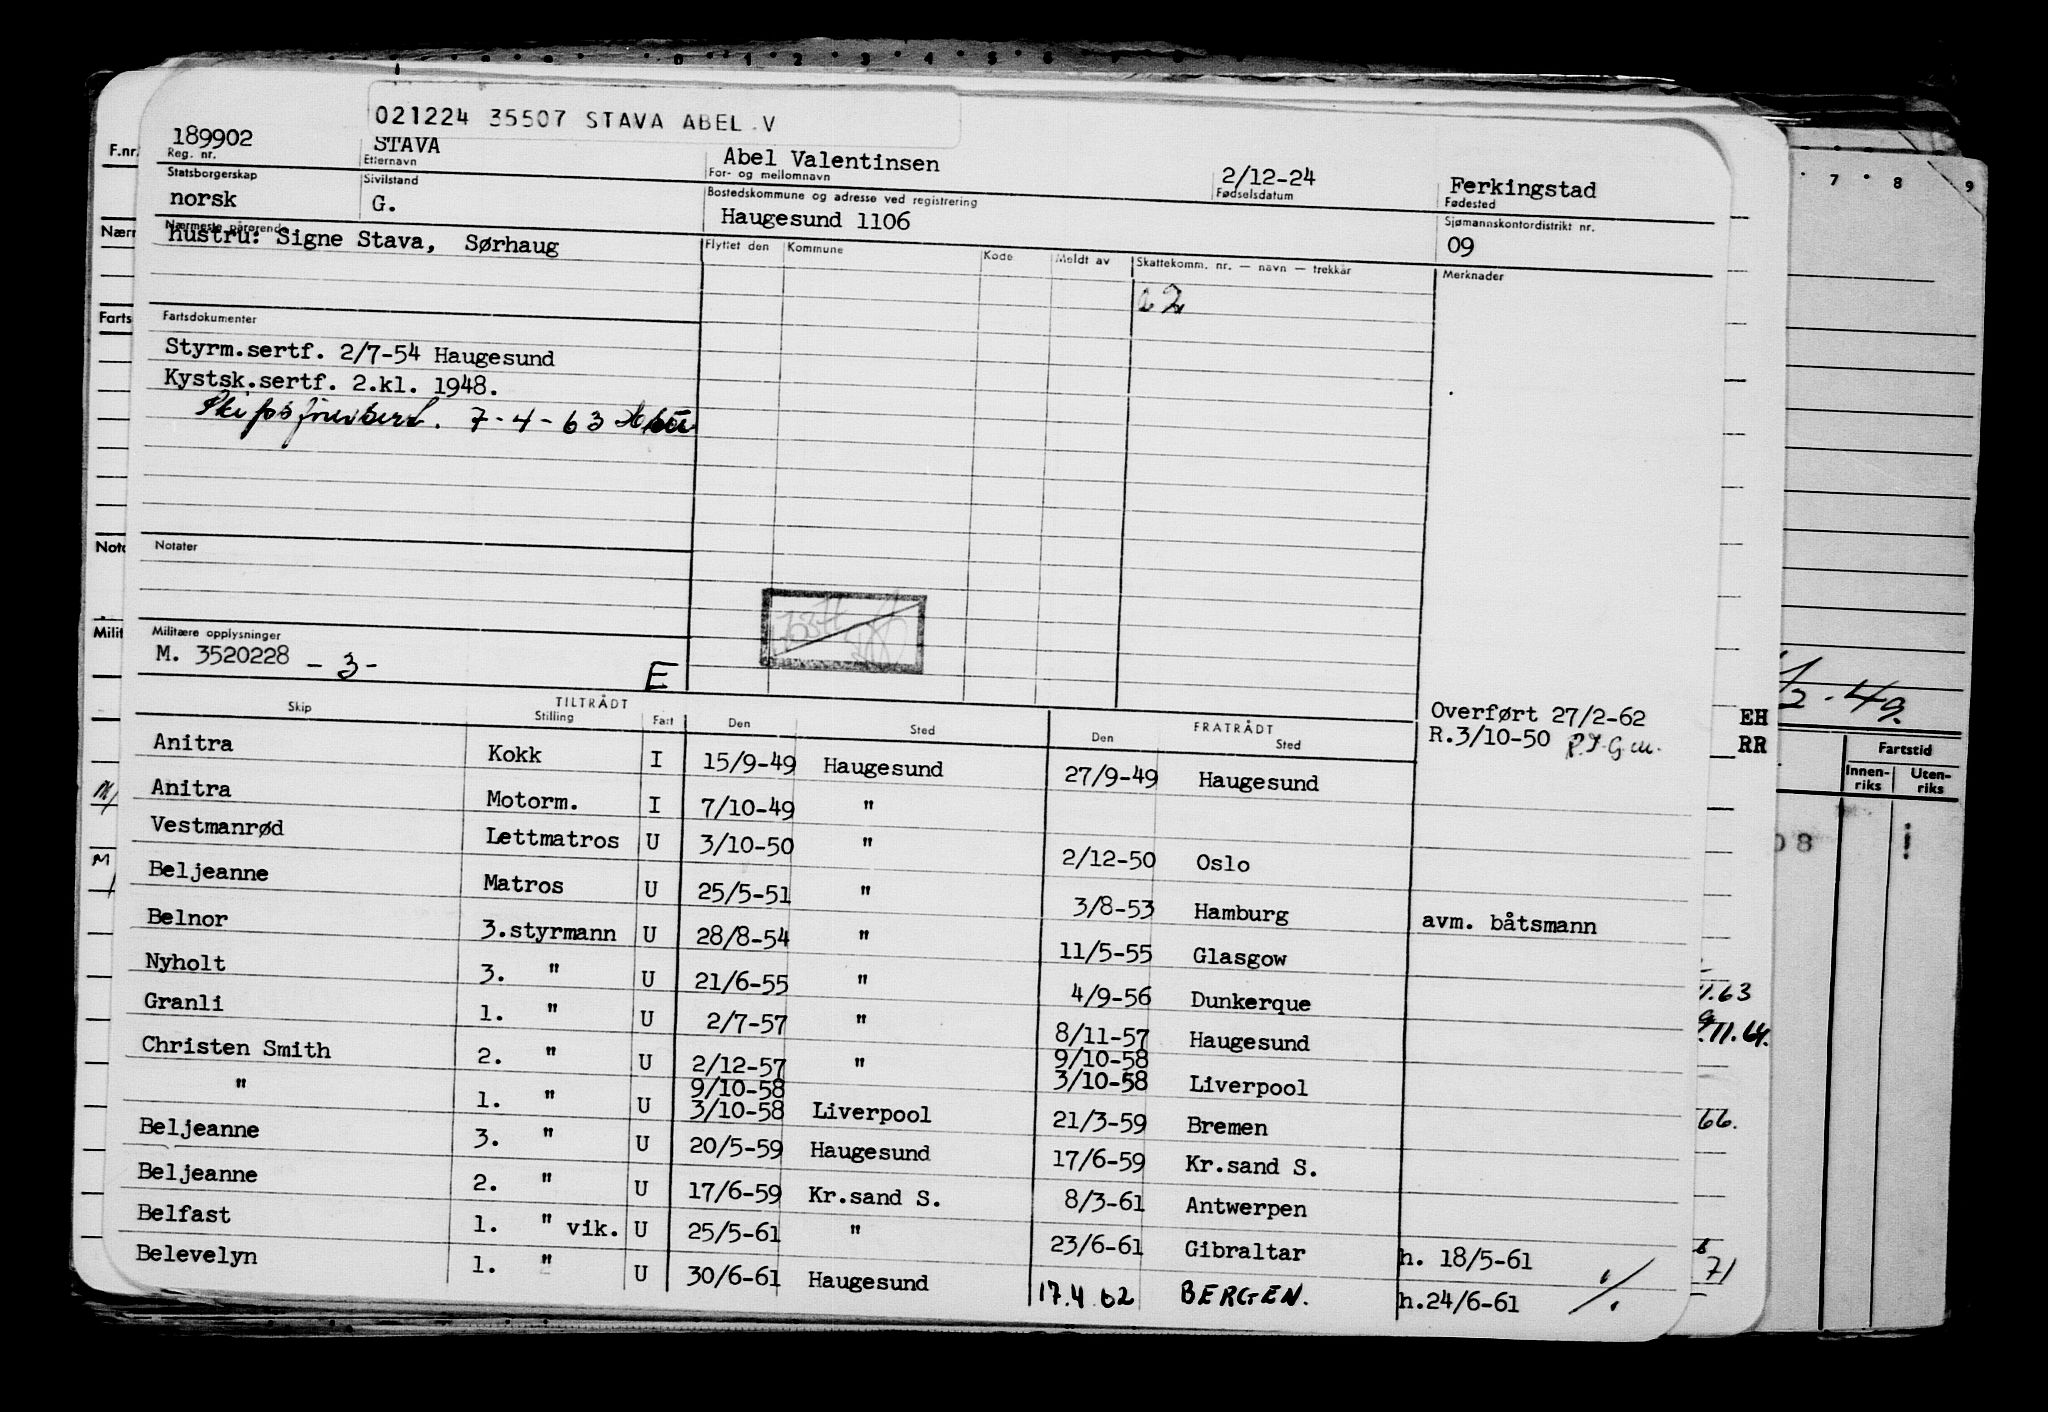 021224 35507 STAVA ABEL V
189902 STAVA Abel Valentinsen 2/12-24 Ferkingstad
Reg. nr. Etternavn For- og mellomnavn Fødselsdatum Fødested
Statsborgerskap Sivilstand Bostedskommune og adresse ved registrering Sjømannskontordistrikt nr.
norsk G. Haugesund 1106 09
Nærmeste pårørende Flyttet den Kommune Kode Meldt av Skattekomm. nr. — navn — trekkår Merknader
hustru: Signe Stava, Sørhaug
Fartsdokumenter
Styrm.sertf. 2/7-54 Haugesund
Kystsk.sertf. 2.kl. 1948.
7-4-63
Notater
Militære opplysninger
M. 3520228 -3- E
Overført 27/2-62 EH
R.3/10-50 RR
TILTRÅDT FRATRÅDT
Skip Stilling Fart Den Sted Den Sted
Anitra Kokk I 15/9-49 Haugesund 27/9-49 Haugesund
Anitra Motorm. I 7/10-49 "
Vestmanrød Lettmatros U 3/10-50 " 2/12-50 Oslo
Beljeanne Matros U 25/5-51 " 3/8-53 Hamburg avm. båtsmann
Belnor 3.styrmann U 28/8-54 " 11/5-55 Glasgow
Nyholt 3. " U 21/6-55 " 4/9-56 Dunkerque
Granli 1. " U 2/7-57 " 8/11-57 Haugesund
Christen Smith 2. " U 2/12-57 " 9/10-58 3/10-58 Liverpool
" 1. " U 9/10-58 3/10-58 Liverpool 21/3-59 Bremen
Beljeanne 3. " U 20/5-59 Haugesund 17/6-59 Kr.sand S.
Beljeanne 2. " U 17/6-59 Kr.sand S. 8/3-61 Antwerpen
Belfast 1. " vik. U 25/5-61 " 23/6-61 Gibraltar h. 18/5-61
Belevelyn 1. " U 30/6-61 Haugesund 17.4 62 BERGEN. h.24/6-61
F.nr.
Nærn
Farts
Nota
Milit
Fartstid
Innen-riks Uten-riks